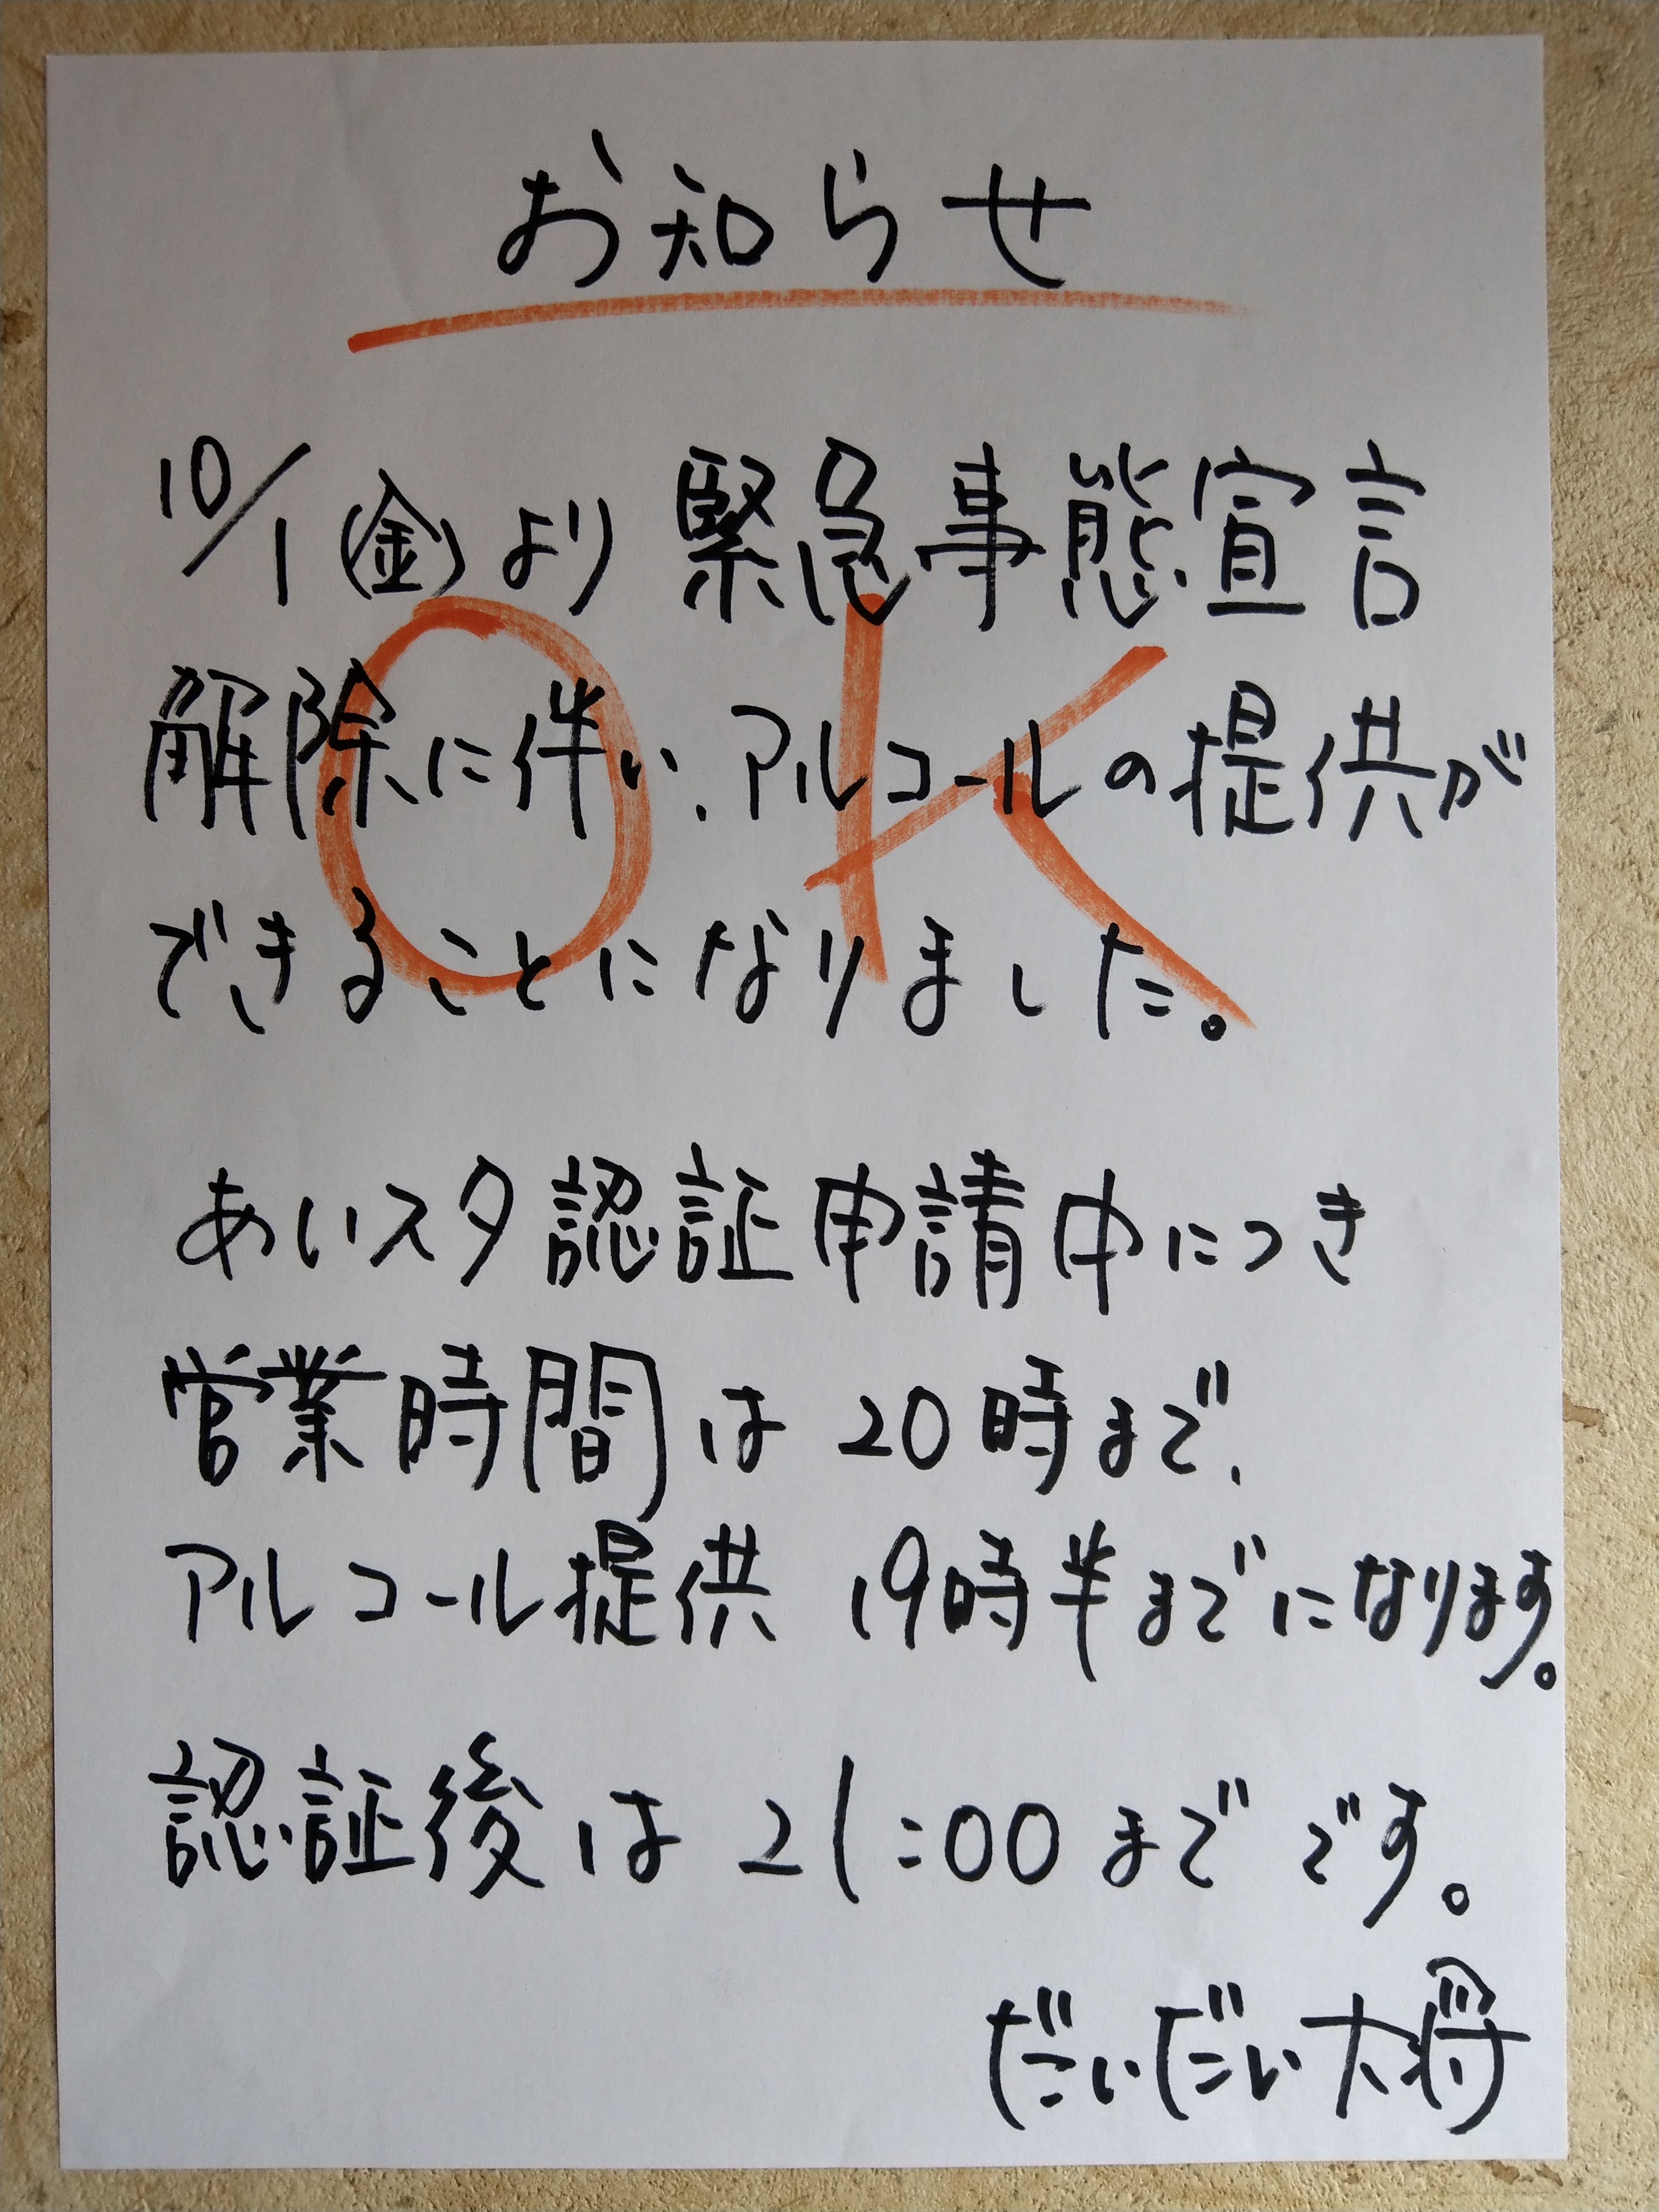 お知らせ
10/1(金)より 緊急事態宣言
解除に伴い、アルコールの提供が
できることになりました。
OK
あいスタ認証申請中につき
営業時間は 20時まで、
アルコール提供 19時半までになります。
認証後は 21:00までです。
だいだい大将